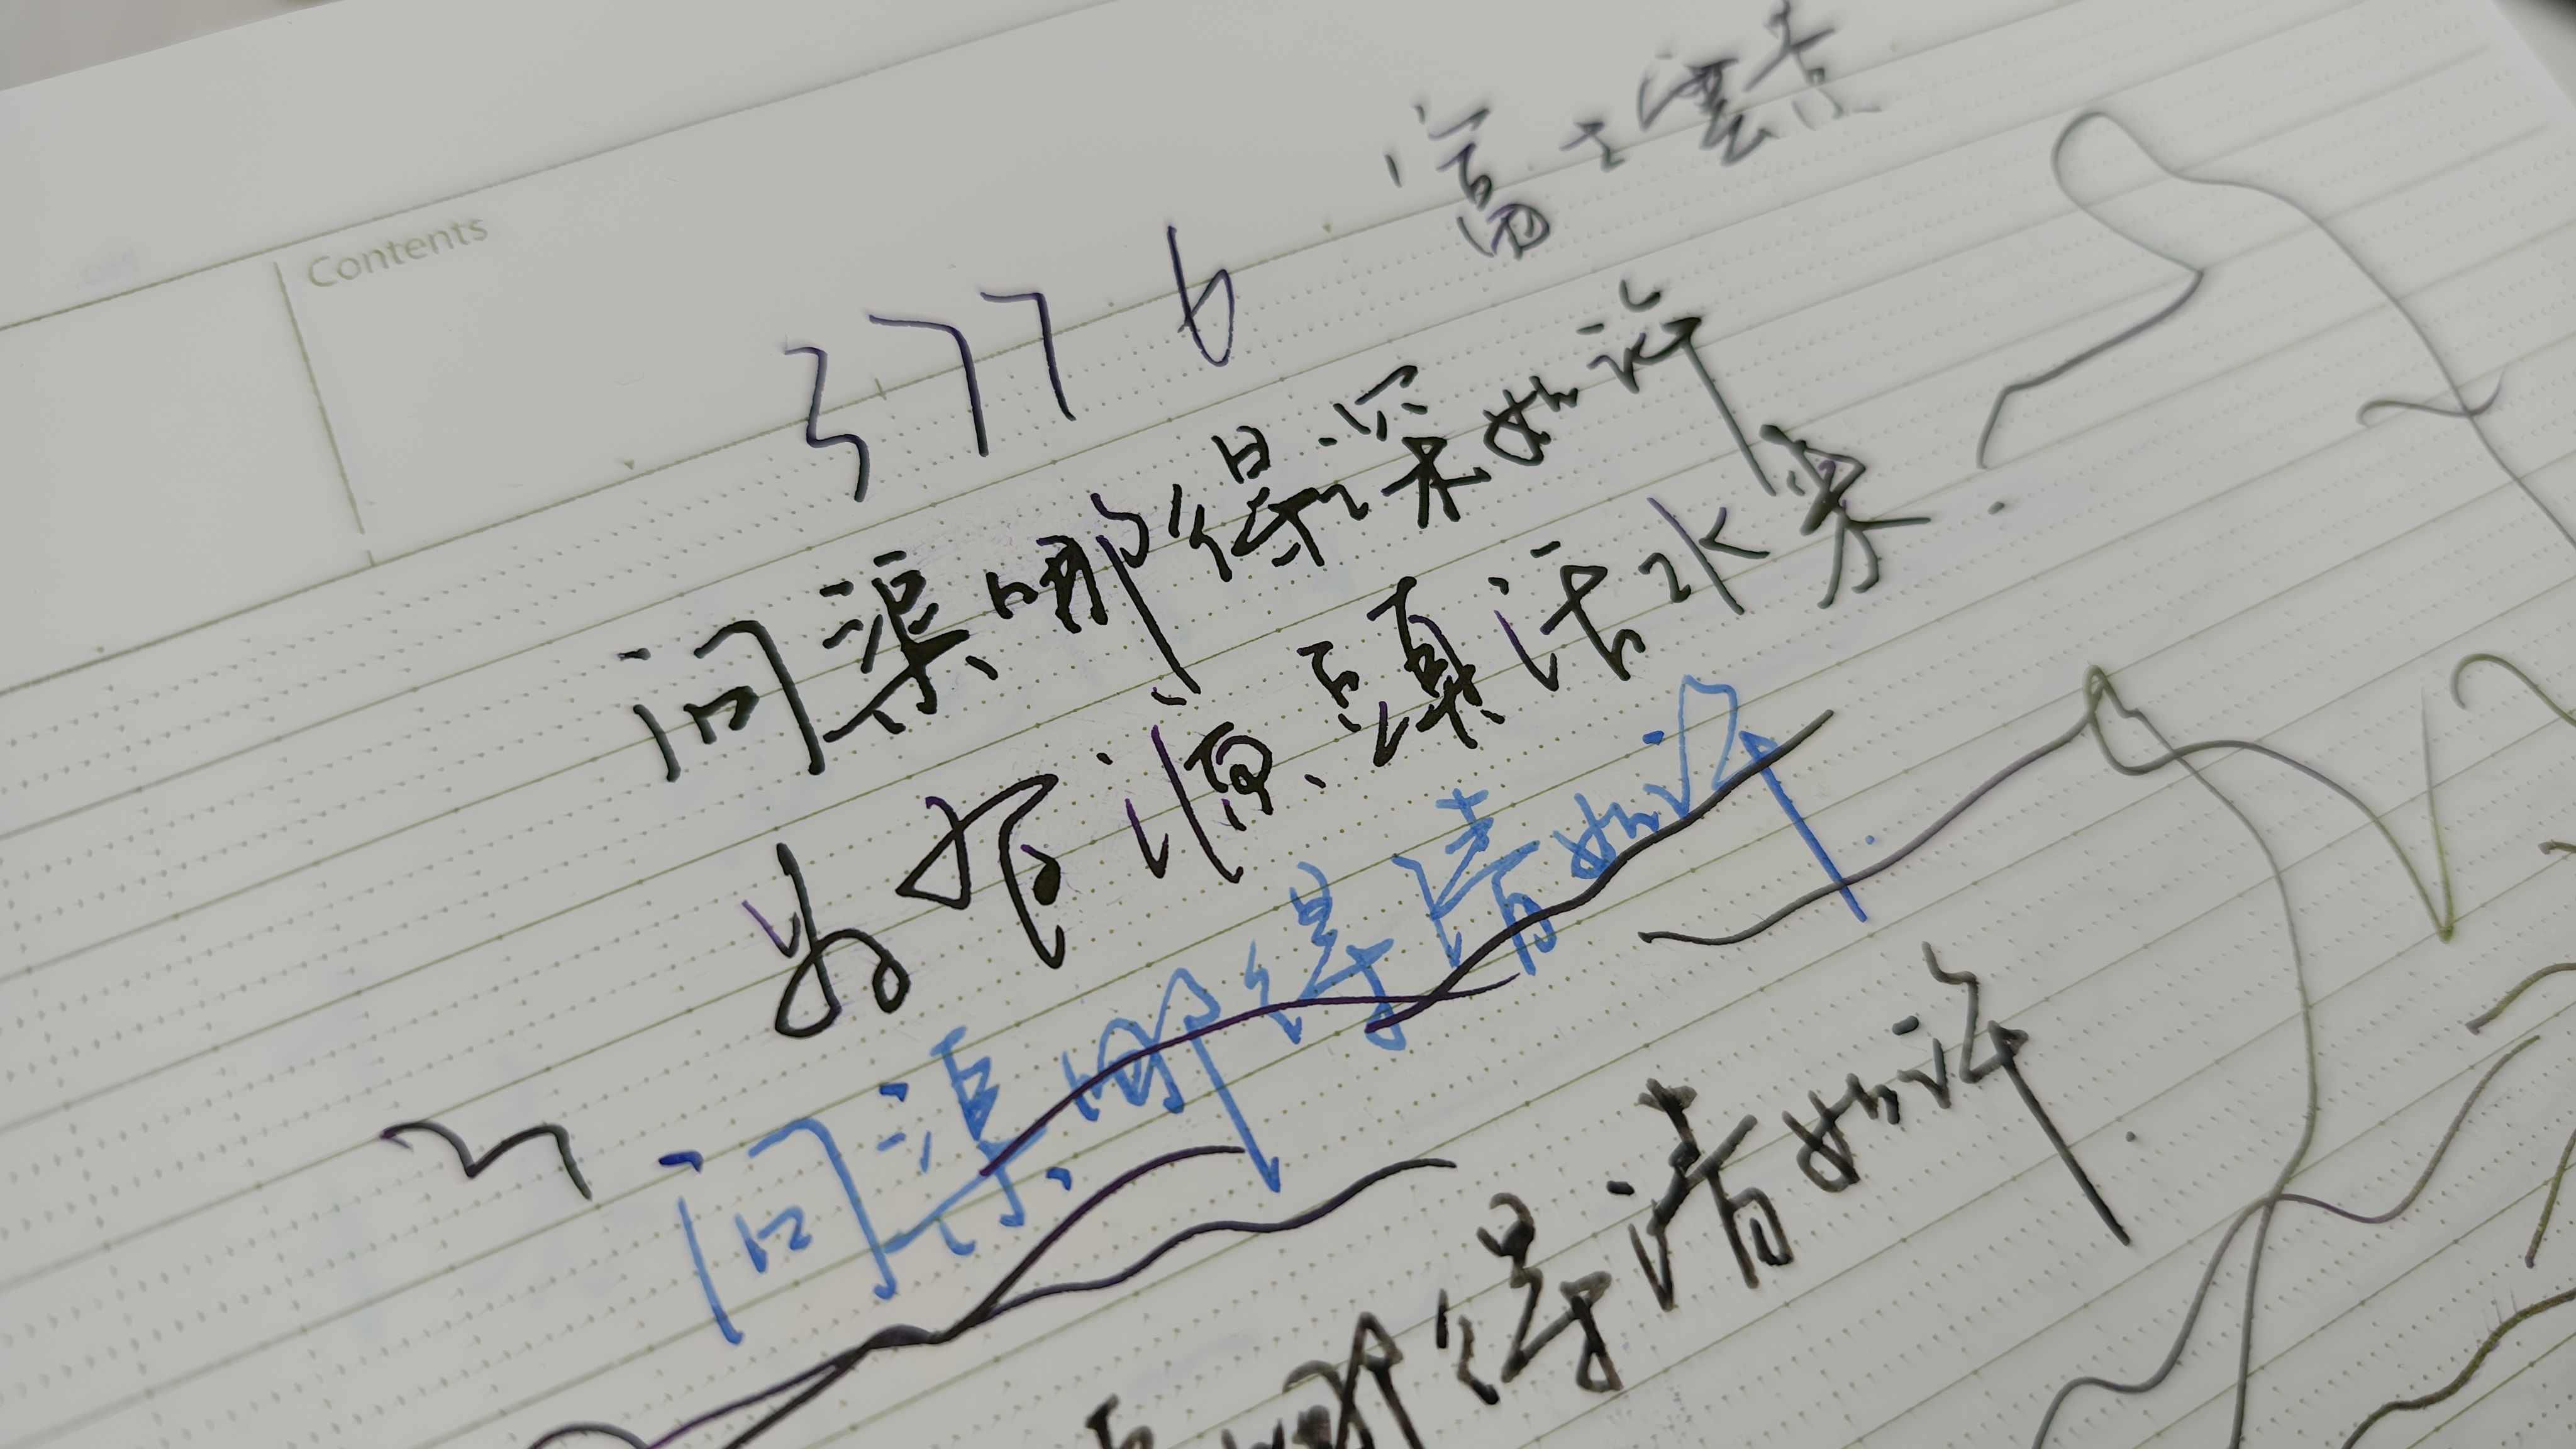 Contents
富士雲景
3776
问渠哪得深如许
为有源頭活水
问渠哪得清如许.
哪得清如许.